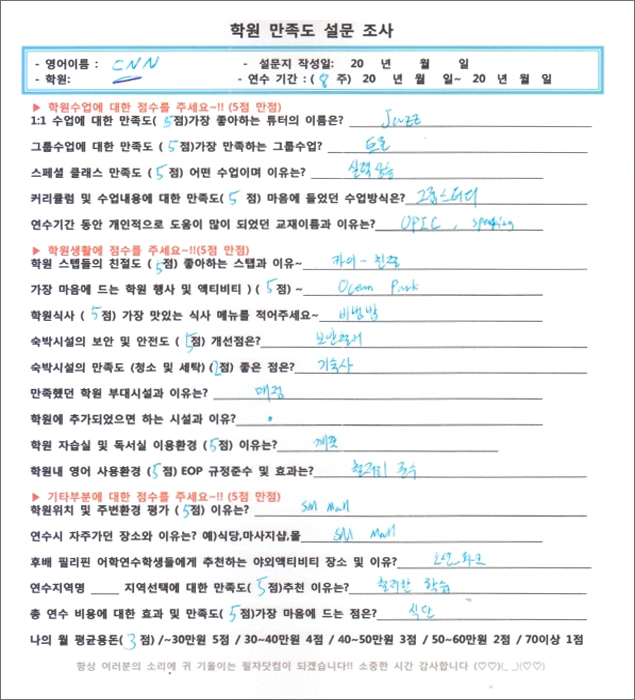 학원 만족도 설문 조사
- 영어이름 : CNN - 설문지 작성일: 20 년 월 일
- 학원: - 연수 기간 : ( 8 주) 20 년 월 일~ 20 년 월 일
▶ 학원수업에 대한 점수를 주세요~!! (5점 만점)
1:1 수업에 대한 만족도( 5점)가장 좋아하는 튜터의 이름은? Juzz
그룹수업에 대한 만족도 ( 5점)가장 만족하는 그룹수업? 토론
스페셜 클래스 만족도 ( 5점) 어떤 수업이며 이유는? 실력상승
커리큘럼 및 수업내용에 대한 만족도( 5 점) 마음에 들었던 수업방식은? 그룹스터디
연수기간 동안 개인적으로 도움이 많이 되었던 교재이름과 이유는? OPIC , speaking
▶ 학원생활에 점수를 주세요~!!(5점 만점)
학원 스텝들의 친절도 ( 5점) 좋아하는 스탭과 이유~ 카이 - 친절
가장 마음에 드는 학원 행사 및 액티비티 ) ( 5점) ~ Ocean Park
학원식사 ( 5점) 가장 맛있는 식사 메뉴를 적어주세요~ 비빔밥
숙박시설의 보안 및 안전도 ( 5점) 개선점은? 보안철저
숙박시설의 만족도 (청소 및 세탁) ( 점) 좋은 점은? 기숙사
만족했던 학원 부대시설과 이유는? 매점
학원에 추가되었으면 하는 시설과 이유?
학원 자습실 및 독서실 이용환경 ( 5점) 이유는? 깨끗
학원내 영어 사용환경 ( 5점) EOP 규정준수 및 효과는? 철저히 준수
▶ 기타부분에 대한 점수를 주세요~!! (5점 만점)
학원위치 및 주변환경 평가 ( 5점) 이유는? SM Mall
연수시 자주가던 장소와 이유는? 예)식당,마사지샵,몰 SM Mall
후배 필리핀 어학연수학생들에게 추천하는 야외액티비티 장소 및 이유? 오션파크
연수지역명 ____ 지역선택에 대한 만족도( 5점)추천 이유는? 철저한 학습
총 연수 비용에 대한 효과 및 만족도( 5점)가장 마음에 드는 점은? 식단
나의 월 평균용돈( 3점) /~30만원 5점 / 30~40만원 4점 / 40~50만원 3점 / 50~60만원 2점 / 70이상 1점
항상 여러분의 소리에 귀 기울이는 필자닷컴이 되겠습니다!! 소중한 시간 감사합니다 (♡♡)(_ _)(♡♡)